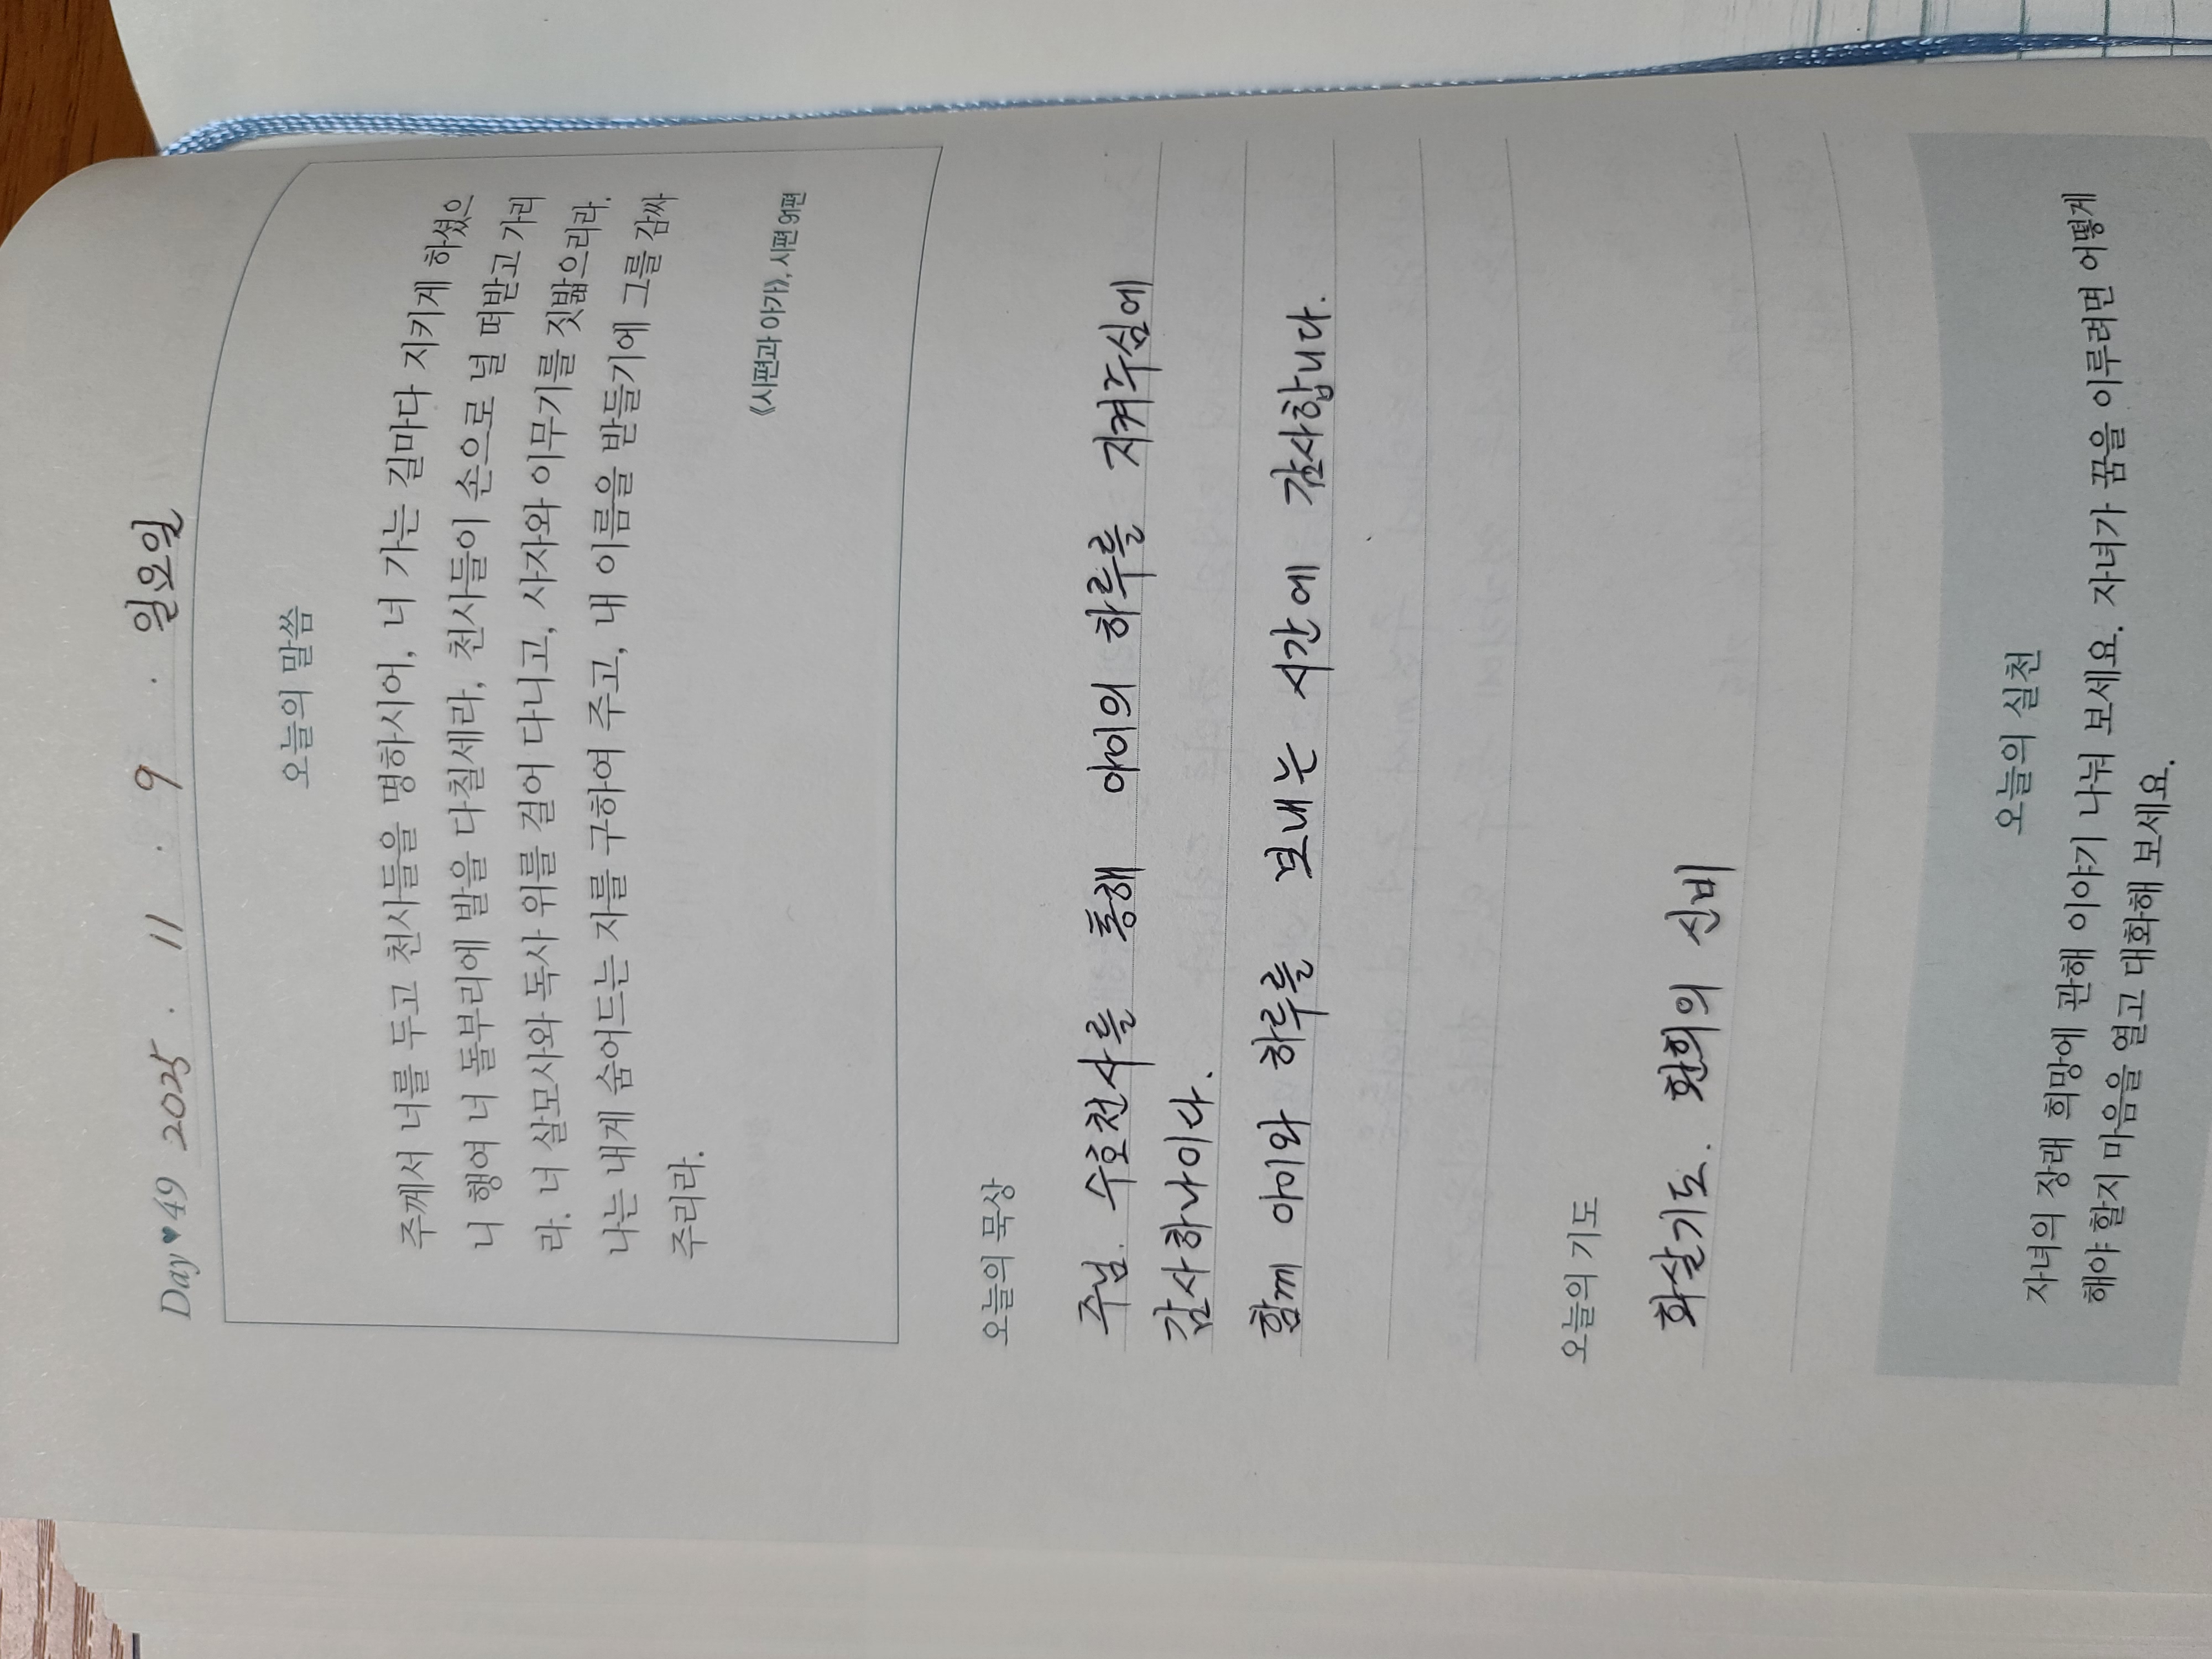 Day♥49 2025. 11. 9. 일요일
오늘의 말씀
주께서 너를 두고 천사들을 명하시어, 너 가는 길마다 지키게 하셨으
니 행여 너 돌부리에 발을 다칠세라, 천사들이 손으로 널 떠받고 가리
라. 너 살모사와 독사 위를 걸어 다니고, 사자와 이무기를 짓밟으리라.
나는 내게 숨어드는 자를 구하여 주고, 내 이름을 받들기에 그를 감싸
주리라.
《시편과 아가》, 시편 91편
오늘의 묵상
주님. 수호천사를 통해 아이의 하루를 지켜주심에
감사하나이다.
함께 아이와 하루를 보내는 시간에 감사합니다.
오늘의 기도
화살기도. 환희의 신비
오늘의 실천
자녀의 장래 희망에 관해 이야기 나눠 보세요. 자녀가 꿈을 이루려면 어떻게
해야 할지 마음을 열고 대화해 보세요.